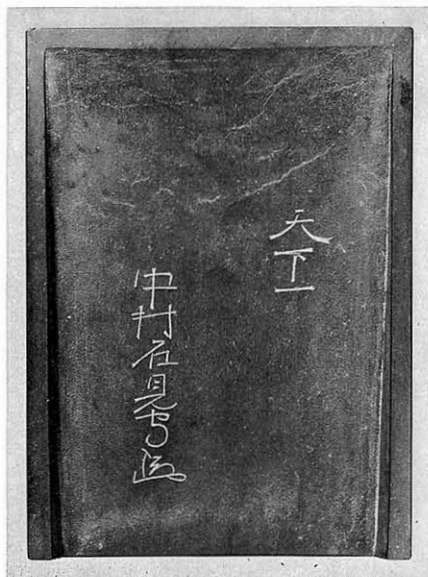 天下一
中村石見守造